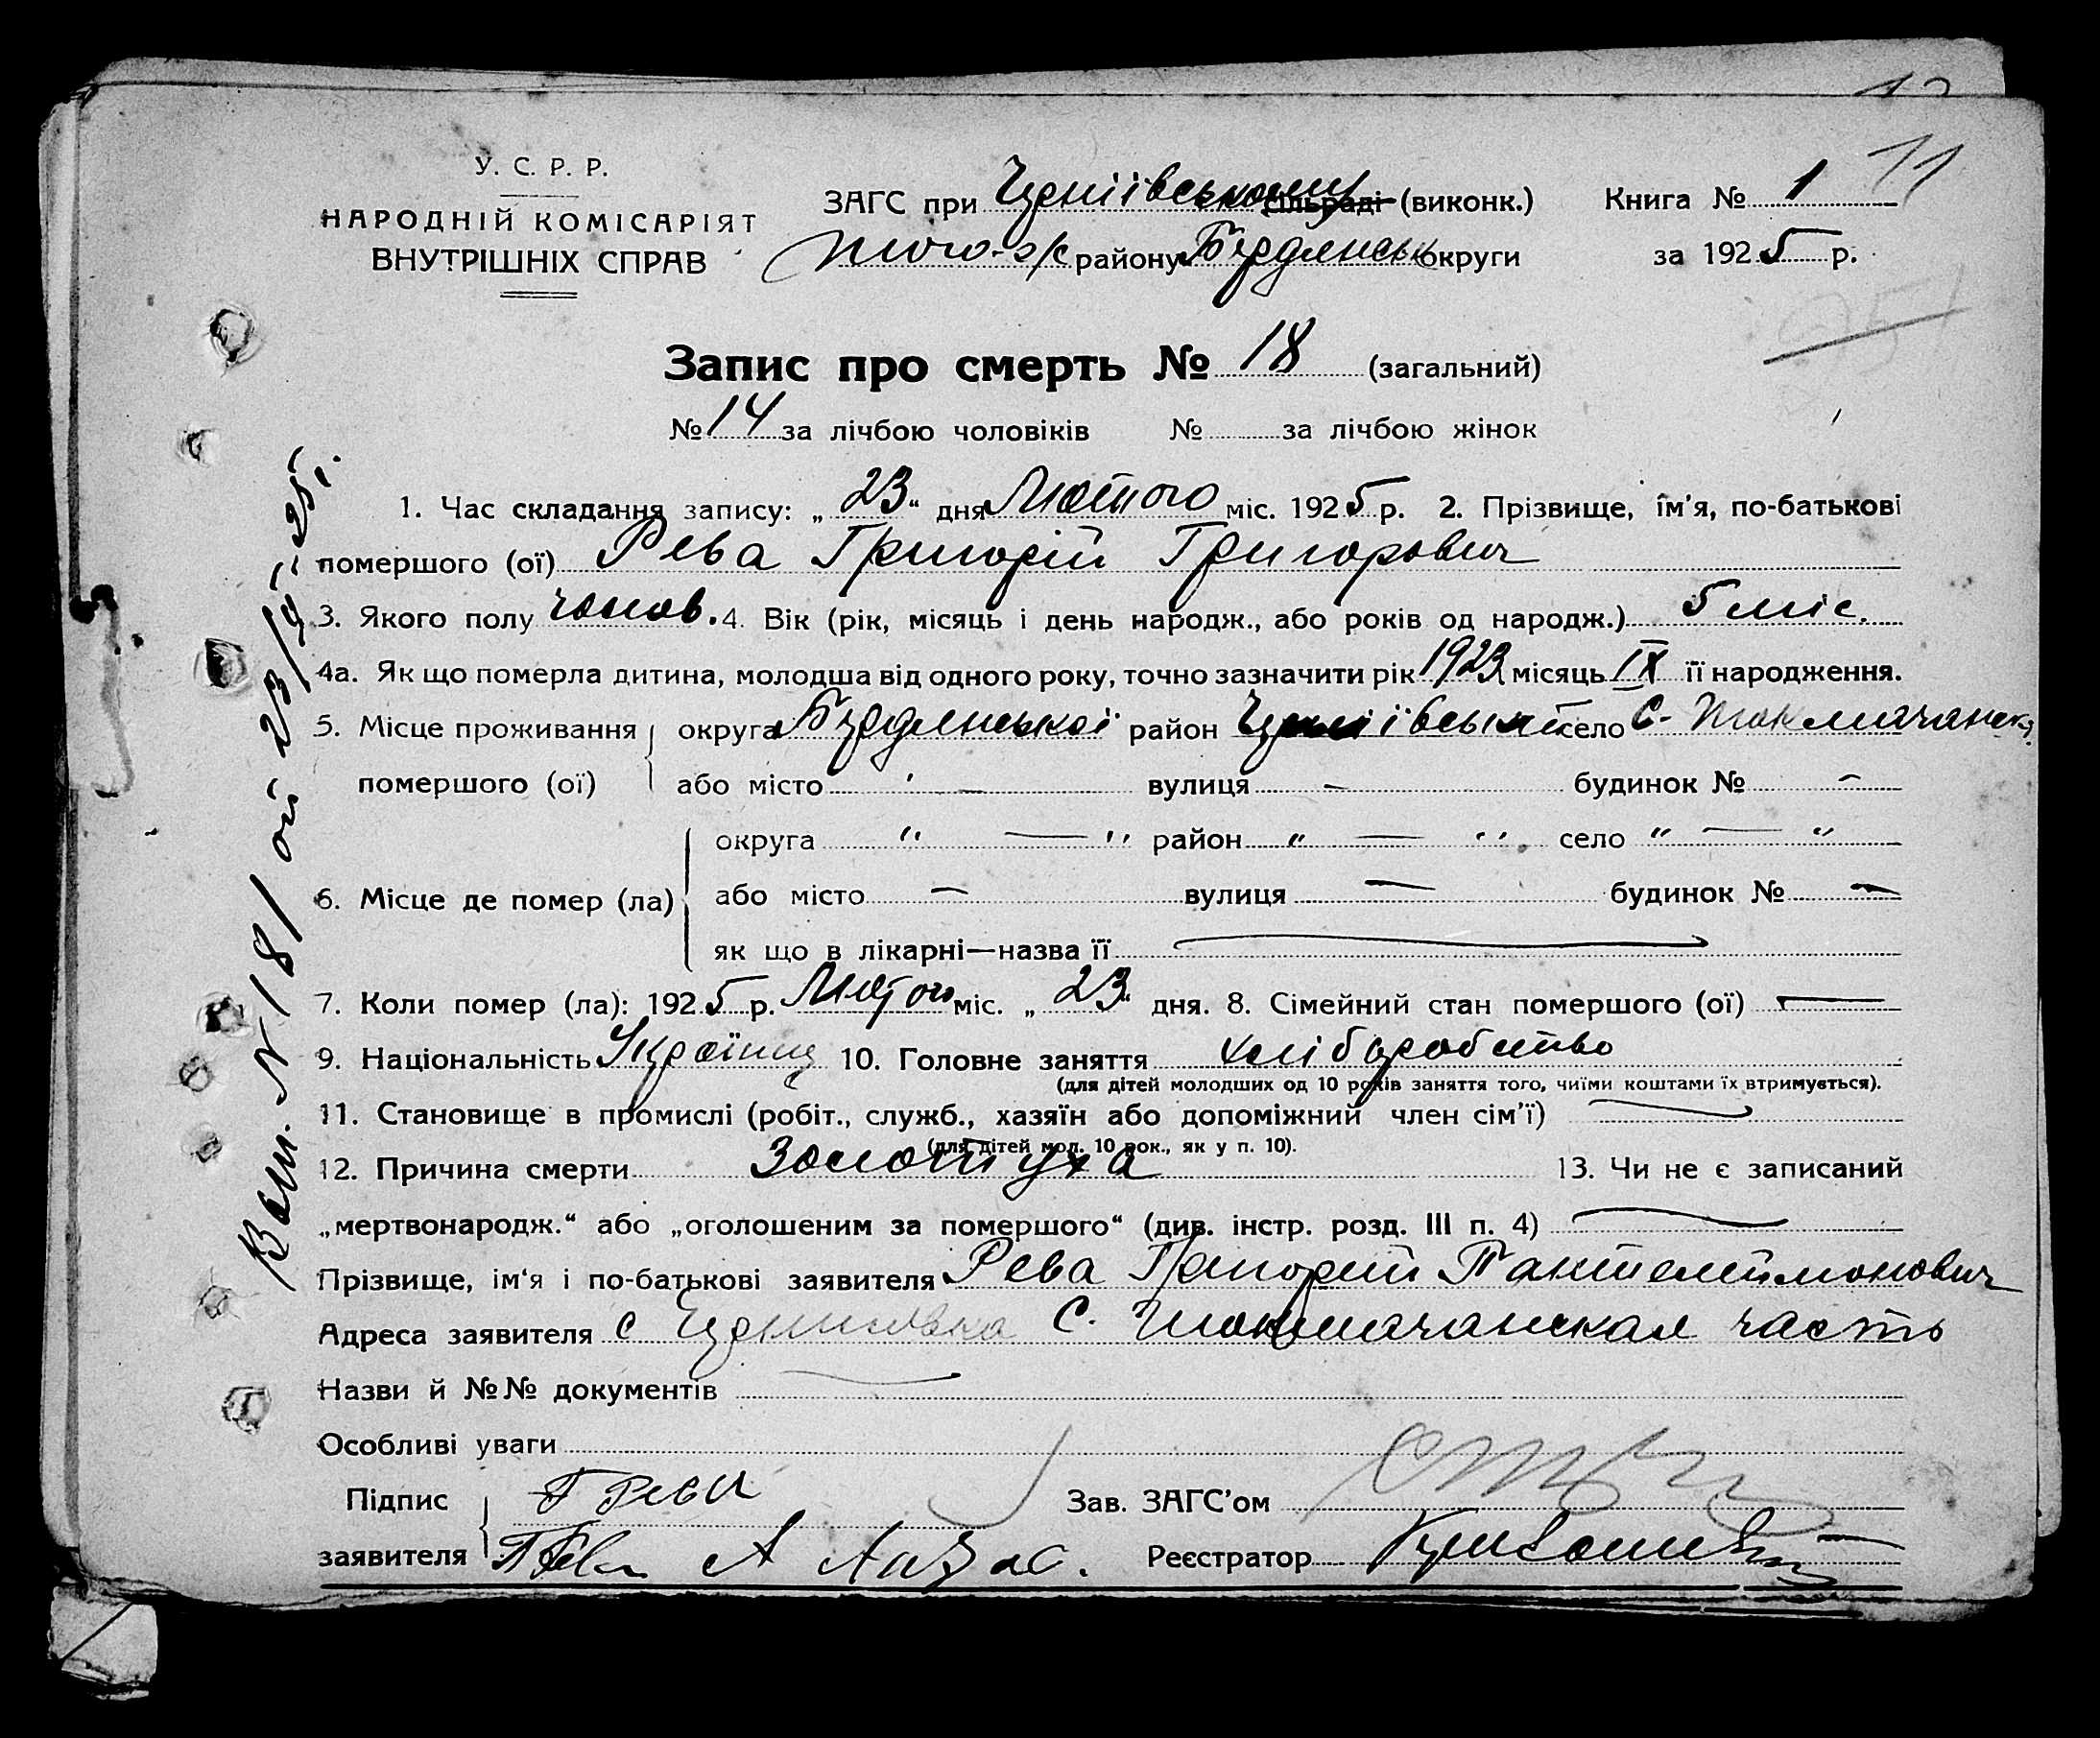 У. С. Р. Р.
НАРОДНІЙ КОМІСАРІЯТ
ВНУТРІШНІХ СПРАВ
ЗАГС при Черніївському сільраді (виконк.)
того-ж району Бердянськ округи
Книга № 1 11
за 1925 р.
Запис про смерть № 18 (загальний)
№ 14 за лічбою чоловіків № за лічбою жінок
1. Час складання запису: „23“ дня Лютого міс. 1925 р. 2. Прізвище, ім'я, по-батькові
помершого (ої) Рева Григорій Григорович
3. Якого полу чолов. 4. Вік (рік, місяць і день народж., або років од народж.) 5 міс.
4а. Як що померла дитина, молодша від одного року, точно зазначити рік 1923 місяць IX її народження.
5. Місце проживання округа Бердянської район село С-Токмачанск
помершого (ої) або місто – вулиця – будинок № –
округа " — " район " — " село " — "
6. Місце де помер (ла) або місто – вулиця — будинок № –
як що в лікарні—назва її —
7. Коли помер (ла): 1925 р. Лютого міс. „23“ дня. 8. Сімейний стан помершого (ої) —
9. Національність Українц 10. Головне заняття хліборобство
(для дітей молодших од 10 років заняття того, чиїми коштами їх втримується).
11. Становище в промислі (робіт., служб., хазяїн або допоміжний член сім'ї) —
(для дітей мол. 10 рок., як у п. 10).
12. Причина смерти Золотуха 13. Чи не є записаний
„мертвонародж.“ або „оголошеним за помершого“ (див. інстр. розд. III п. 4) —
Прізвище, ім'я і по-батькові заявителя Рева Григорий Пантелеймонович
Адреса заявителя с С. Токмачанская часть
Назви й №№ документів —
Особливі уваги
Підпис Г Рева Зав. ЗАГС'ом
заявителя Г Рева А Реєстратор
N 18/ от 23/II-25 г.